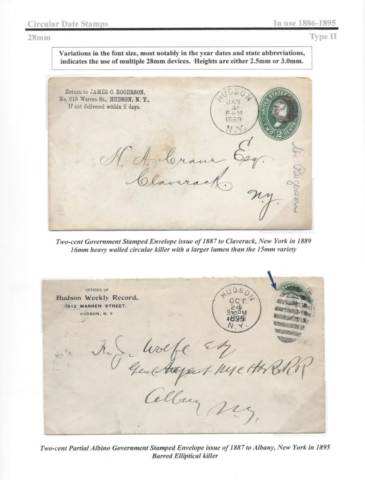 Circular Date Stamps In use 1886-1895
28mm Type II
Variations in the font size, most notably in the year dates and state abbreviations,
indicates the use of multiple 28mm devices. Heights are either 2.5mm or 3.0mm.
Return to JAMES C. ROGERSON,
No. 610 Warren St., HUDSON, N. Y.,
If not delivered within 5 days.
HUDSON
JAN
1889
N.Y.
H. A. Crane Esq.
Claverack.
N.y.
Two-cent Government Stamped Envelope issue of 1887 to Claverack, New York in 1889
16mm heavy walled circular killer with a larger lumen than the 15mm variety
OFFICE OF
Hudson Weekly Record,
WARREN STREET,
HUDSON, N. Y.
HUDSON
OCT
24
1895
N.Y.
Wolfe Esq
Gen
Albany N.y.
Two-cent Partial Albino Government Stamped Envelope issue of 1887 to Albany, New York in 1895
Barred Elliptical killer